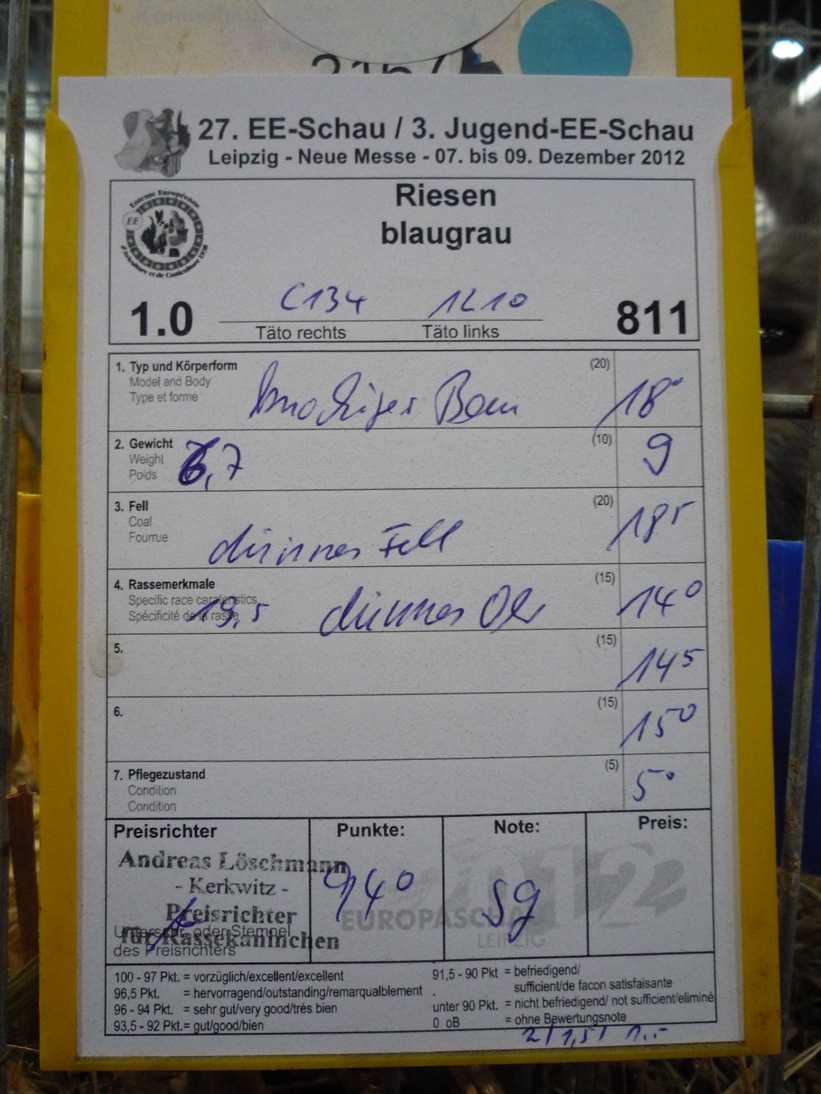 27. EE-Schau / 3. Jugend-EE-Schau
Leipzig - Neue Messe - 07. bis 09. Dezember 2012
Entente Européenne
EE
d'Aviculture et de Cuniculture 1938
Riesen
blaugrau
1.0 C134 1L10 811
Täto rechts Täto links
1. Typ und Körperform (20)
Model and Body
Type et forme
knochiger Bau 18⁰
2. Gewicht (10)
Weight
Poids
6,7 9
3. Fell (20)
Coal
Fourrue
dünnes Fell 18⁵
4. Rassemerkmale (15)
Specific race
Spécificité de la rasse
19,5 dünnes 14⁰
5. (15)
14⁵
6. (15)
15⁰
7. Pflegezustand (5)
Condition
Condition
5⁰
Preisrichter Punkte: Note: Preis:
Andreas Löschmann
- Kerkwitz -
Preisrichter
für Rassekaninchen
oder Stempel
des Preisrichters
94⁰ sg
EUROPASCHAU
LEIPZIG
100 - 97 Pkt. = vorzüglich/excellent/excellent
96,5 Pkt. = hervorragend/outstanding/remarqualblement
96 - 94 Pkt. = sehr gut/very good/trés bien
93,5 - 92 Pkt.= gut/good/bien
91,5 - 90 Pkt = befriedigend/
sufficient/de facon satisfaisante
unter 90 Pkt. = nicht befriedigend/ not sufficient/eliminé
0 oB = ohne Bewertungsnote
2/1,5/ 1.-